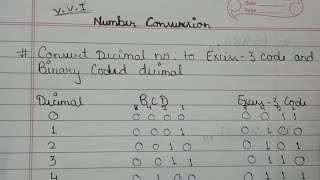 V.V.I
Date
Page
Number Conversion
# Convert Decimal no. to Excess-3 Code and
Binary Coded decimal
Decimal B C D Excess-3 Code
8 4 2 1 8 4 2 1
0 0 0 0 0 0 0 1 1
1 0 0 0 1 0 1 0 0
2 0 0 1 0 0 1 0 1
3 0 0 1 1 0 1 1 0
4